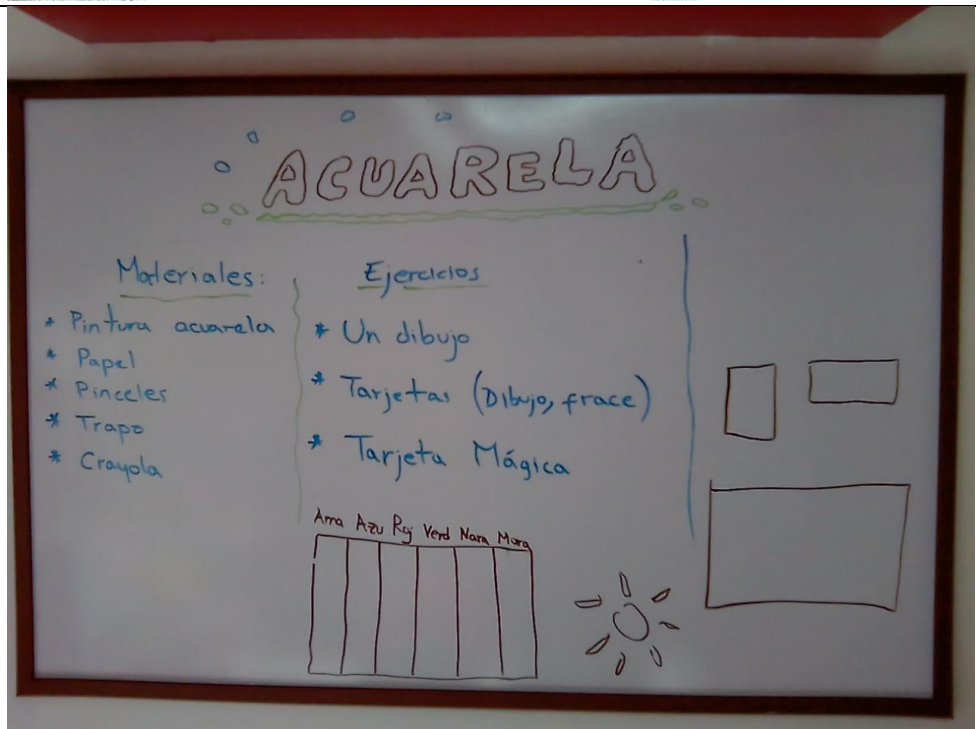 ACUARELA
Materiales:
* Pintura acuarela
* Papel
* Pinceles
* Trapo
* Crayola
Ejercicios
* Un dibujo
* Tarjetas (Dibujo, frace)
* Tarjeta Mágica
Ama Azu Roj Verd Nara Mora